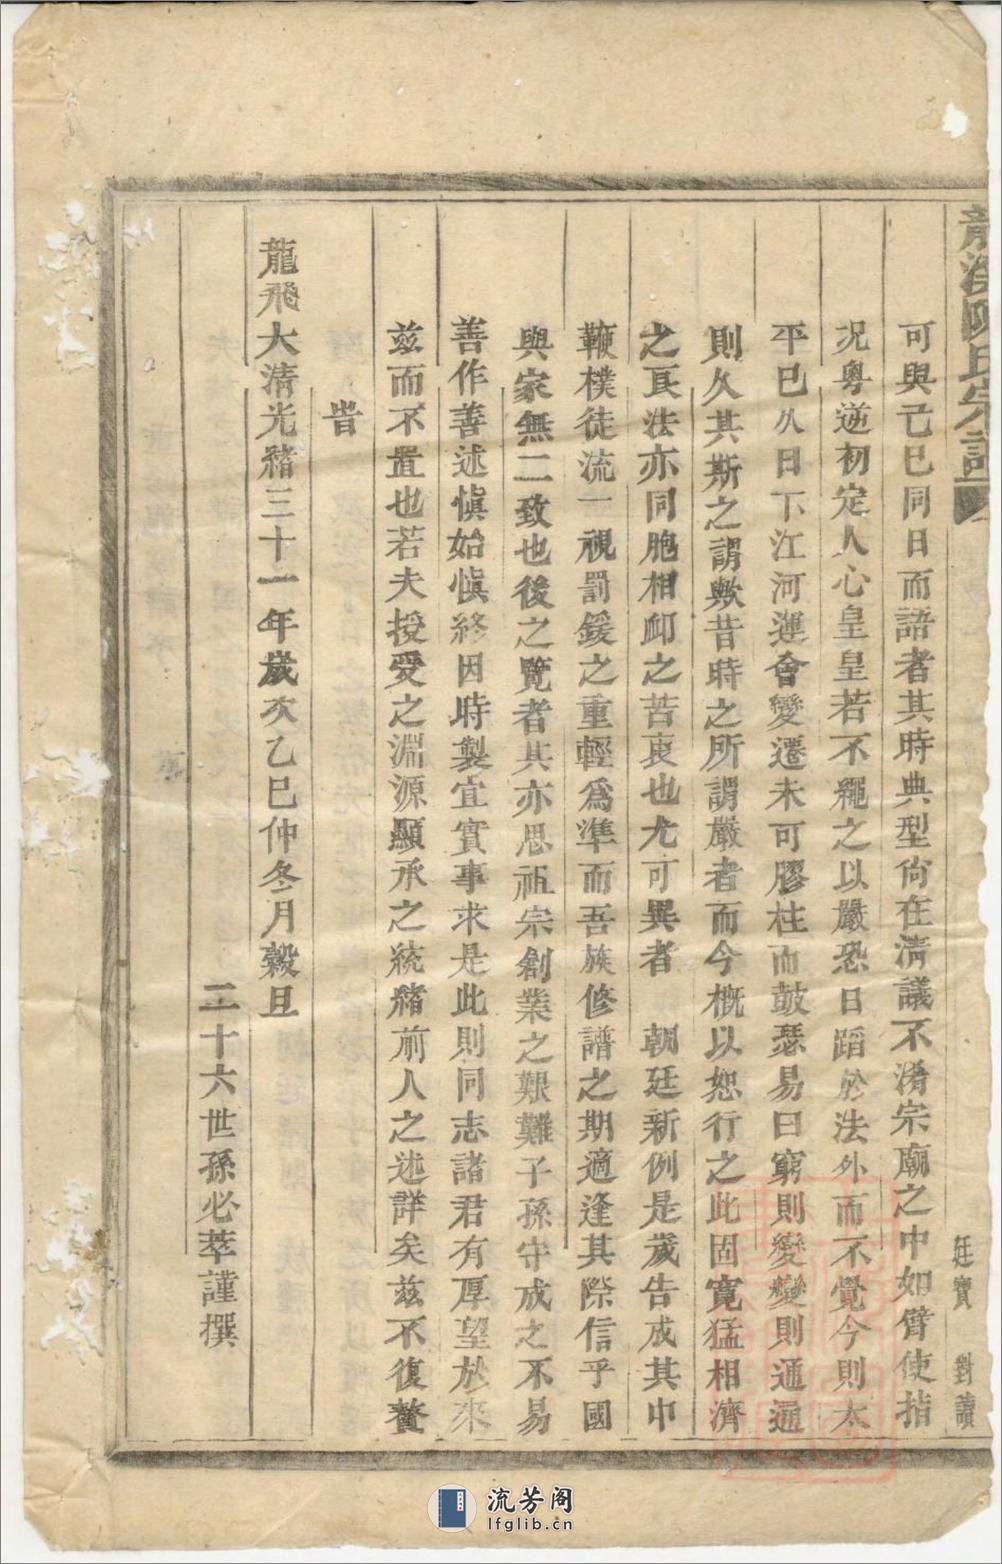 陳氏宗譜
廷寶 對讀
可與己巳同日而語者其時典型尙在淸議不淆宗廟之中如臂使指
況粵逆初定人心皇皇若不繩之以嚴恐日蹈於法外而不覺今則太
平已久日下江河運會變遷未可膠柱而鼓瑟易曰窮則變變則通通
則久其斯之謂歟昔時之所謂嚴者而今概以恕行之此固寬猛相濟
之良法亦同胞相卹之苦衷也尤可異者 朝廷新例是歲告成其中
鞭樸徒流一視罰鍰之重輕爲準而吾族修譜之期適逢其際信乎國
與家無二致也後之覽者其亦思祖宗創業之艱難子孫守成之不易
善作善述愼始愼終因時製宜實事求是此則同志諸君有厚望於來
兹而不置也若夫授受之淵源顯承之統緖前人之述詳矣兹不復贅
旹
龍飛大清光緖三十一年歲次乙巳仲冬月穀旦
二十六世孫必萃謹撰
流芳阁
lfglib.cn